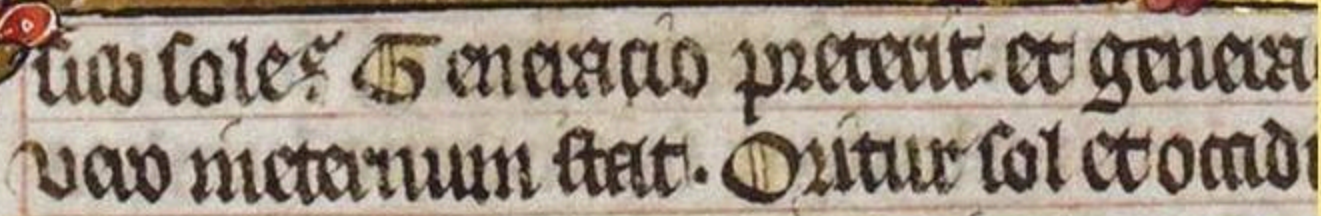 sub sole? Generacio preterit. et genera
vero ineternum stat. Oritur sol et occidi